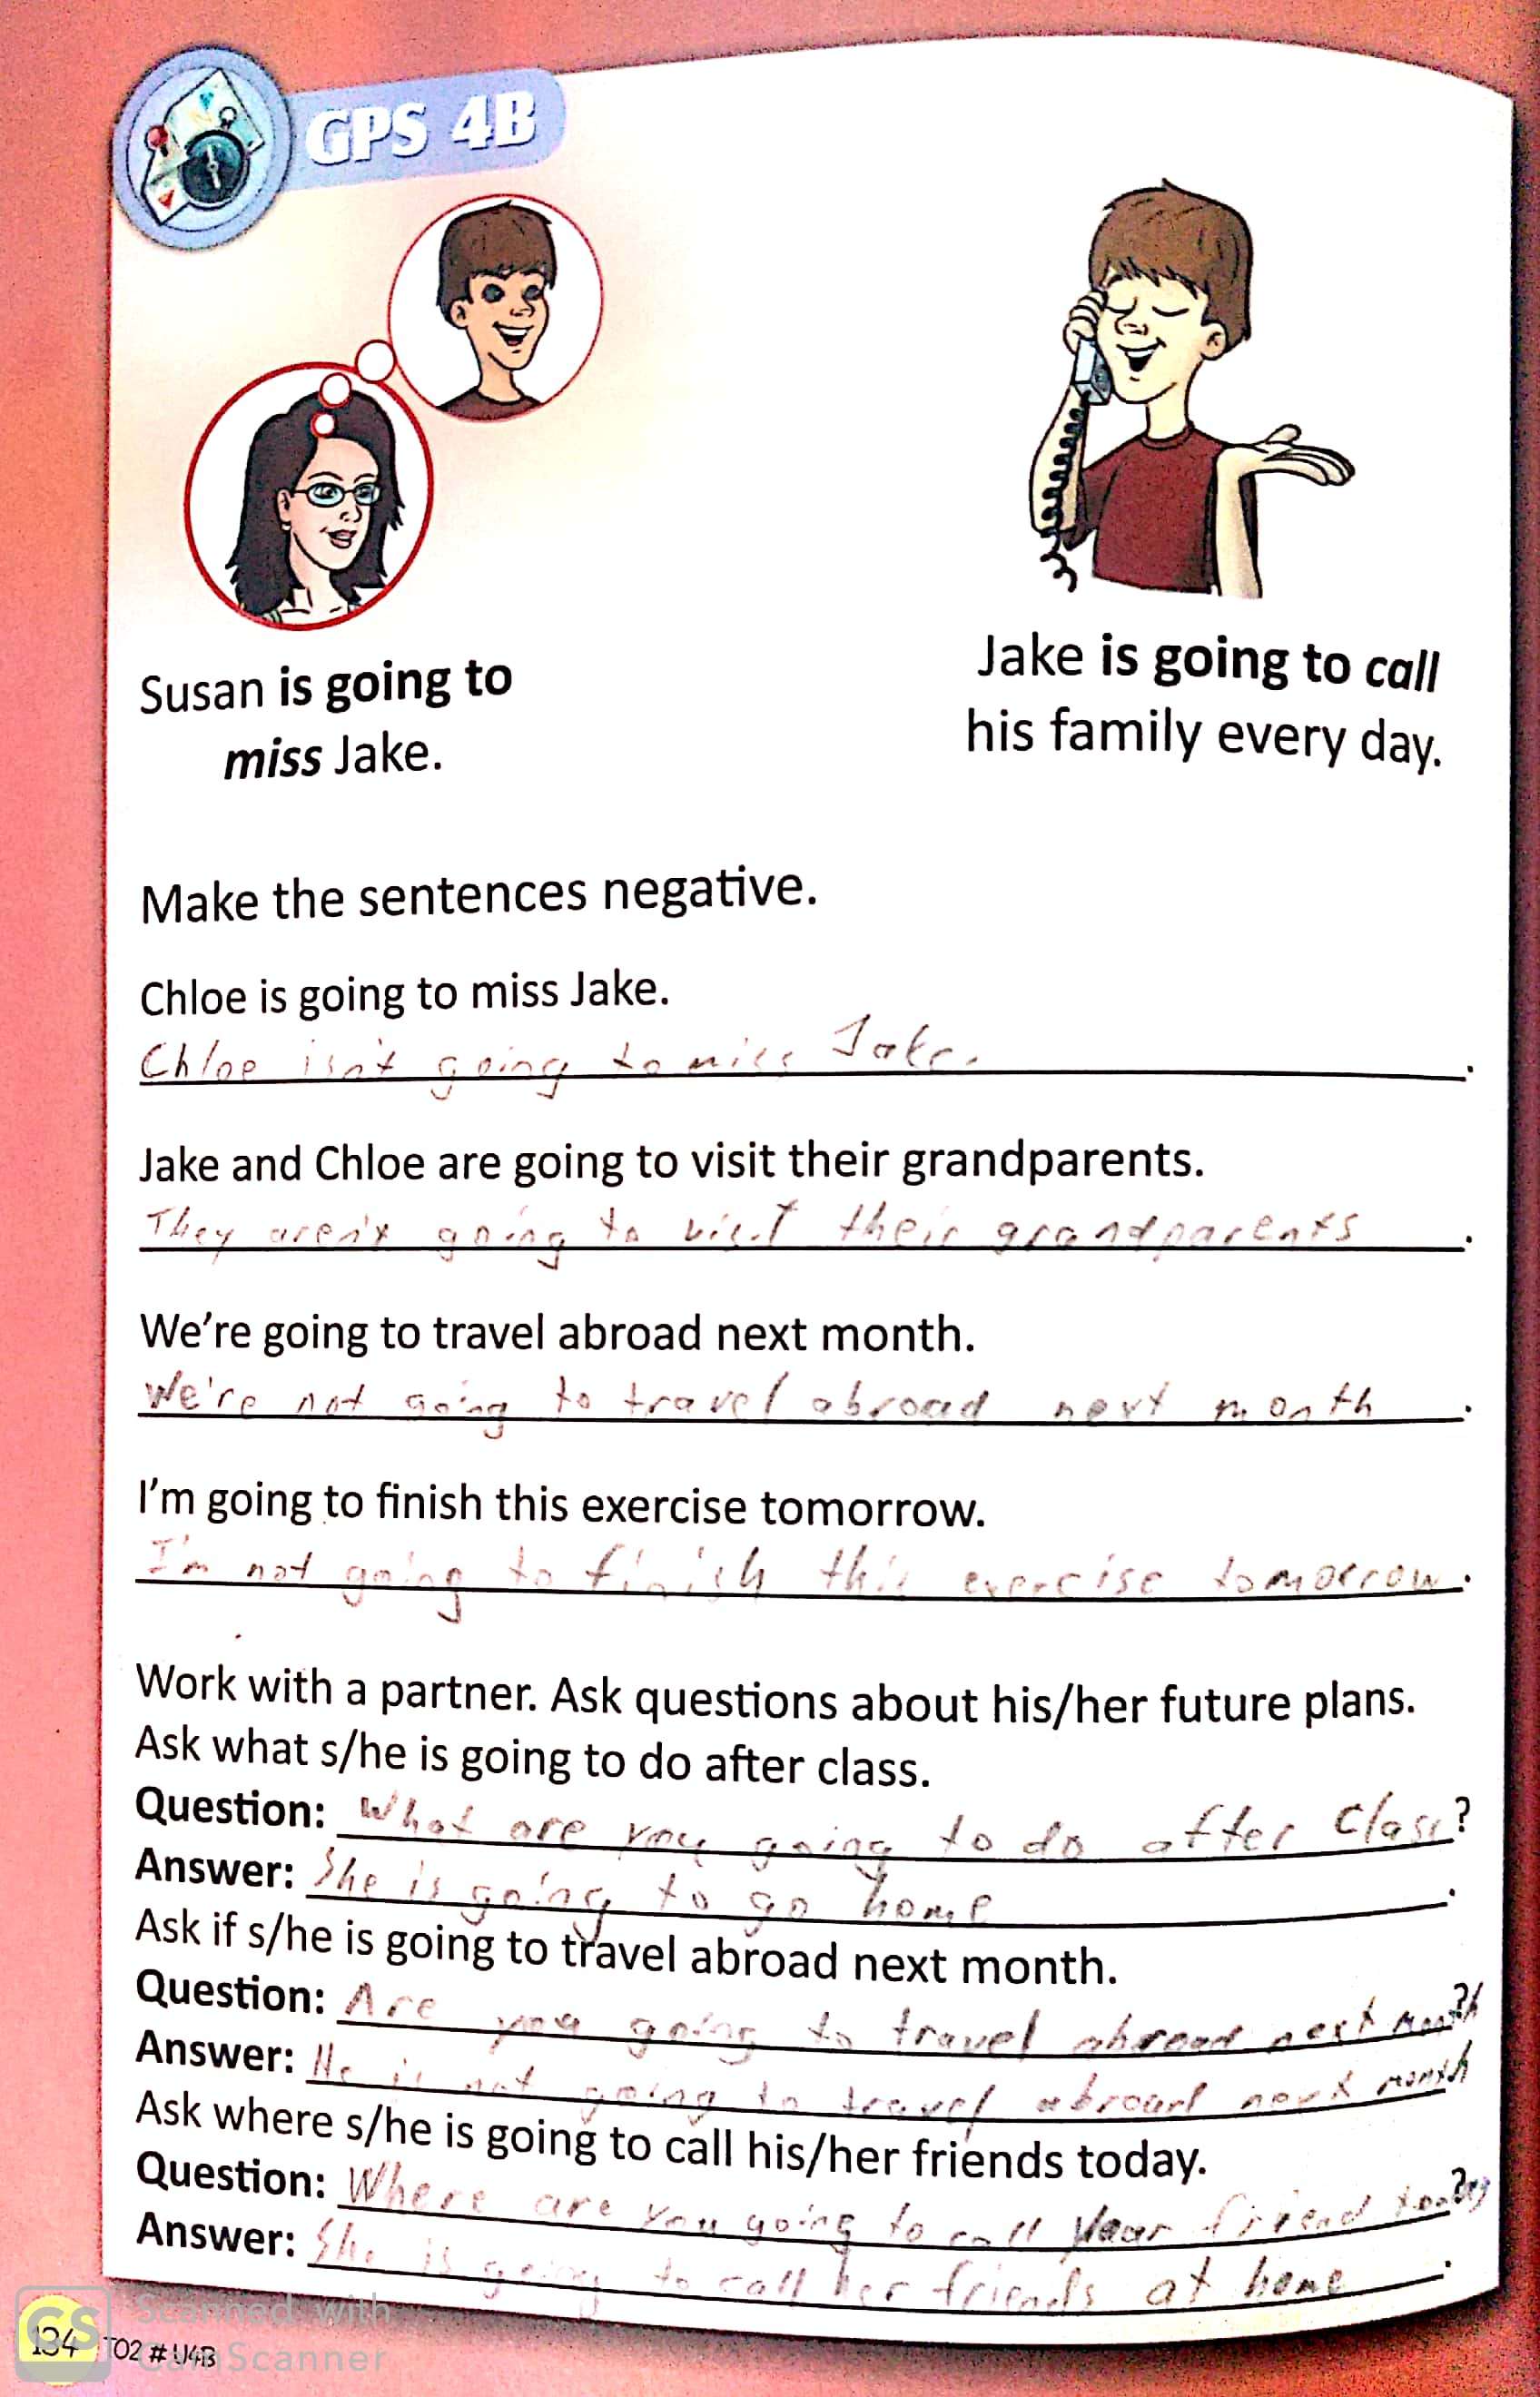 GPS 4B
Susan is going to
miss Jake.
Jake is going to call
his family every day.
Make the sentences negative.
Chloe is going to miss Jake.
Chloe isn't going to miss Jake.
.
Jake and Chloe are going to visit their grandparents.
They aren't going to visit their grandparents.
We're going to travel abroad next month.
We're not going to travel abroad next month.
I'm going to finish this exercise tomorrow.
I'm not going to finish this exercise tomorrow.
Work with a partner. Ask questions about his/her future plans.
Ask what s/he is going to do after class.
Question: What are you going to do after class?
Answer: She is going to go home.
Ask if s/he is going to travel abroad next month.
Question: Are you going to travel abroad next month?
Answer: He is not going to travel abroad next month
Ask where s/he is going to call his/her friends today.
Question: Where are you going to call your friend today?
Answer: She is going to call her friends at home.
134 T02 # U4B
CS Scanned with
CamScanner